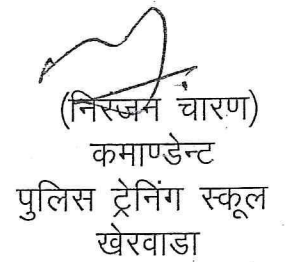 (निरंजन चारण)
कमाण्डेन्ट
पुलिस ट्रेनिंग स्कूल
खेरवाडा